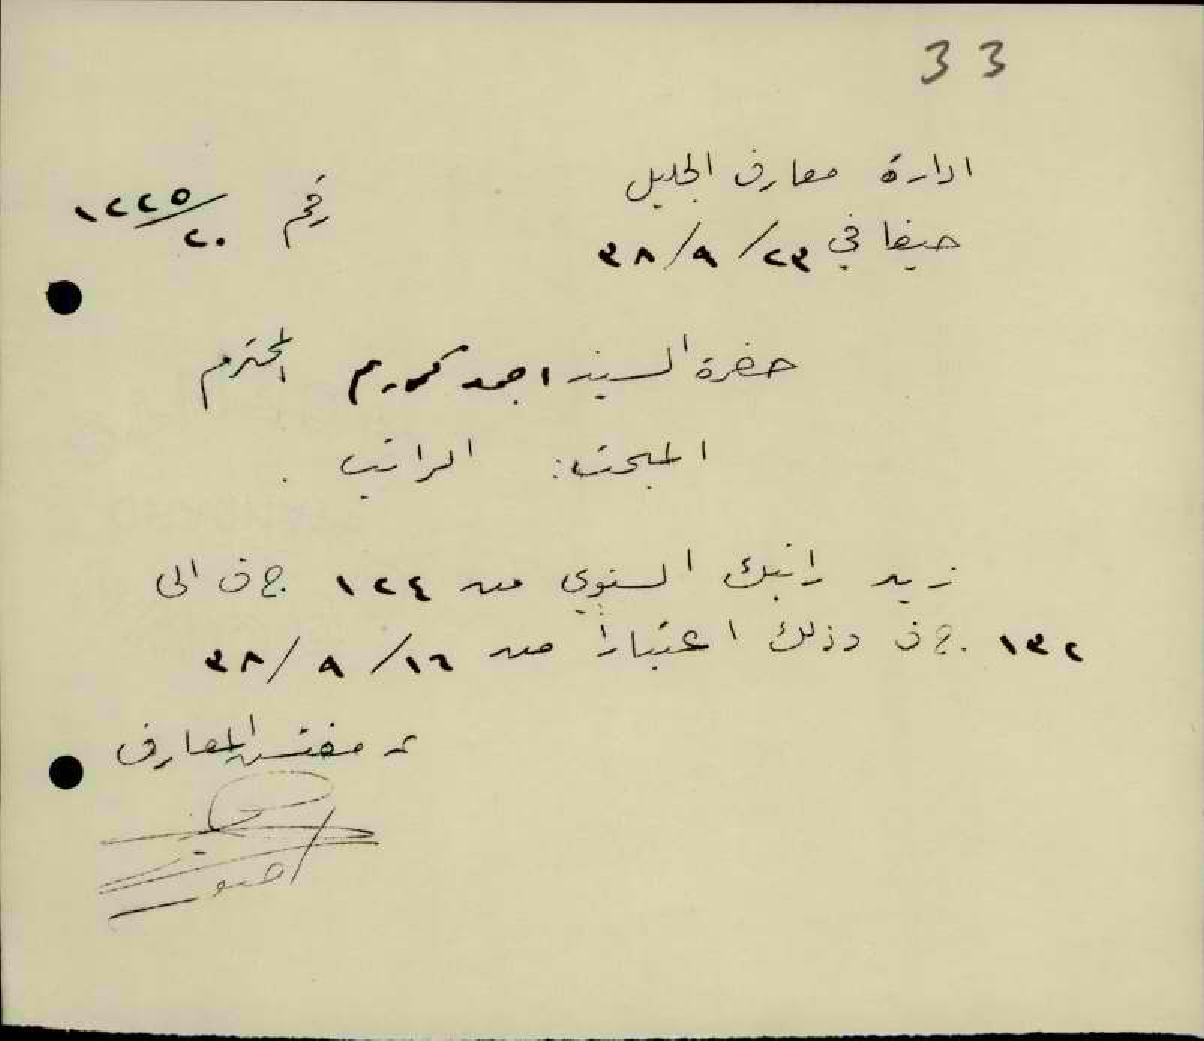 33
ادارة معارف الجليل
رقم ١٢٢٥/٢٠
حيفا في ٢٣/٩/٣٨
حضرة السيد احمد كريم المحترم
المبحث: الراتب.
زيد راتبك السنوي من ١٢٤ ج ف الى
١٣٢ ج ف وذلك اعتباراً من ١٦/٩/٣٨
عن مفتش المعارف